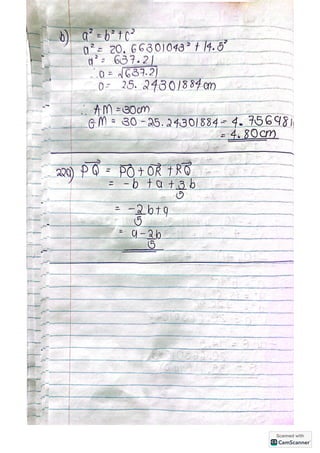 b) a² = b² + c²
a² = 20.66301043² + 14.5²
a² = 637.21
∴ a = √637.21
a = 25.24301884 cm
∴ AM = 30cm
GM = 30 - 25.24301884 = 4.756981
= 4.80cm
22a) PQ = PO + OR + RQ
= -b + a + 3/5 b
= -2/5 b + a
= a - 2/5 b
Scanned with
CS CamScanner